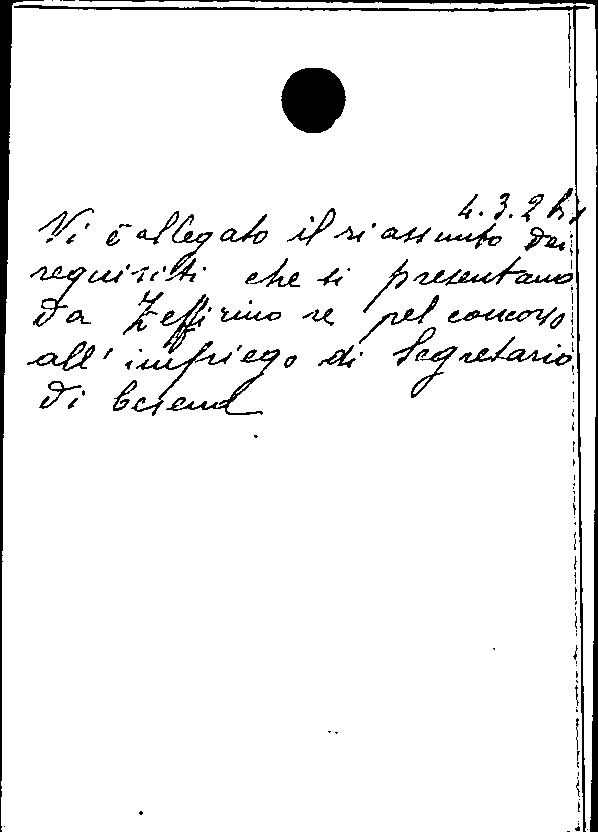 4.3.2
Vi è allegato il riassunto dei
requisiti che si presentano
da Zeffirino re pel concorso
all'impiego di Segretario
di Cesena